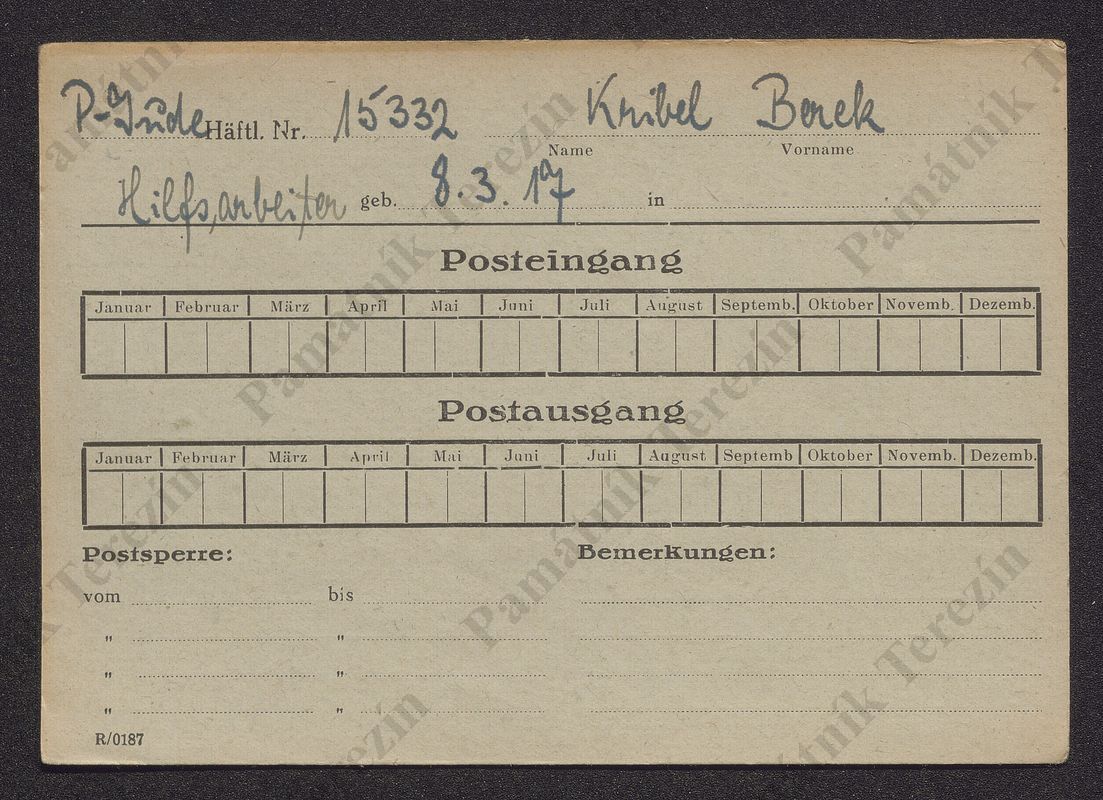 P-Jude Häftl. Nr. 15332 Kribel Borek
Name Vorname
Hilfsarbeiter geb. 8. 3. 17 in
Posteingang
Januar Februar März April Mai Juni Juli August Septemb. Oktober Novemb. Dezemb.
Postausgang
Januar Februar März April Mai Juni Juli August Septemb Oktober Novemb. Dezemb.
Postsperre: Bemerkungen:
vom bis
" "
" "
" "
R/0187
Památník Terezín